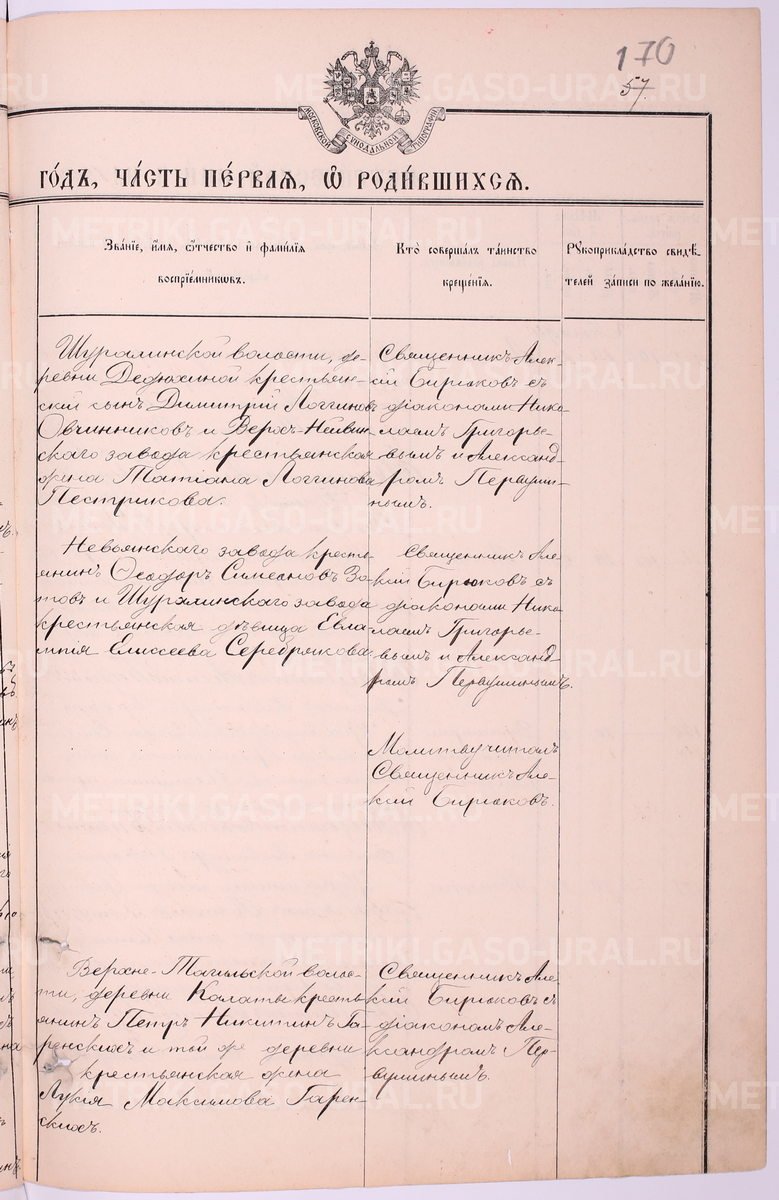 170
57.
МОСКОВСКОЙ СѴНОДАЛЬНОЙ ТИПОГРАФІИ
ГО́ДЪ, ЧА́СТЬ ПЕ́РВАЯ, Ѽ РОДИ́ВШИХСЯ.
Зва́нїе, и҆́мя, ѻ҆́тчество и҆ фами́лїя
воспрїе́мникѡвъ.
Кто̀ соверша́лъ та́инство
креще́нїя.
Рꙋкоприкла́дство свидѣ́-
телей за́писи по жела́нїю.
Шуралинской волости, де-
ревни Дедюхиной крестьян-
ский сынъ Димитрій Логгиновъ
Овчинниковъ и Верхъ-Нейвин-
скаго завода крестьянская
жена Татіана Логгинова
Пестрикова.
Священникъ Алек-
сій Бирюковъ съ
діаконами Нико-
лаемъ Григорье-
вымъ и Александ-
ромъ Первуши-
нымъ.
Невьянскаго завода кресть-
янинъ Ѳеодоръ Симеоновъ Зо-
товъ и Шуралинскаго завода
крестьянская дѣвица Евла-
мпія Елисеева Серебрякова
Священникъ Але-
ксій Бирюковъ съ
діаконами Нико-
лаемъ Григорье-
вымъ и Александ-
ромъ Первушинымъ.
Молитву читалъ
Священникъ Але-
ксій Бирюковъ.
Верхне-Тагильской волос-
ти, деревни Калаты кресть-
янинъ Петръ Никитинъ Га-
ренскихъ и той же деревни
крестьянская жена
Лукія Максимова Гарен-
скихъ.
Священникъ Але-
ксій Бирюковъ съ
діакономъ Але-
ксандромъ Пер-
вушинымъ.
METRIKI.GASO-URAL.RU